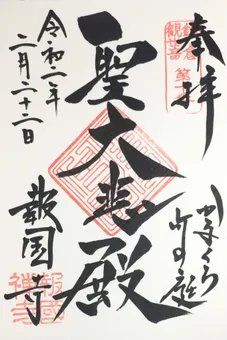 奉拝
かまくら
竹の庭
聖大悲殿
令和二年
二月二十二日
報国寺
報国
禅寺